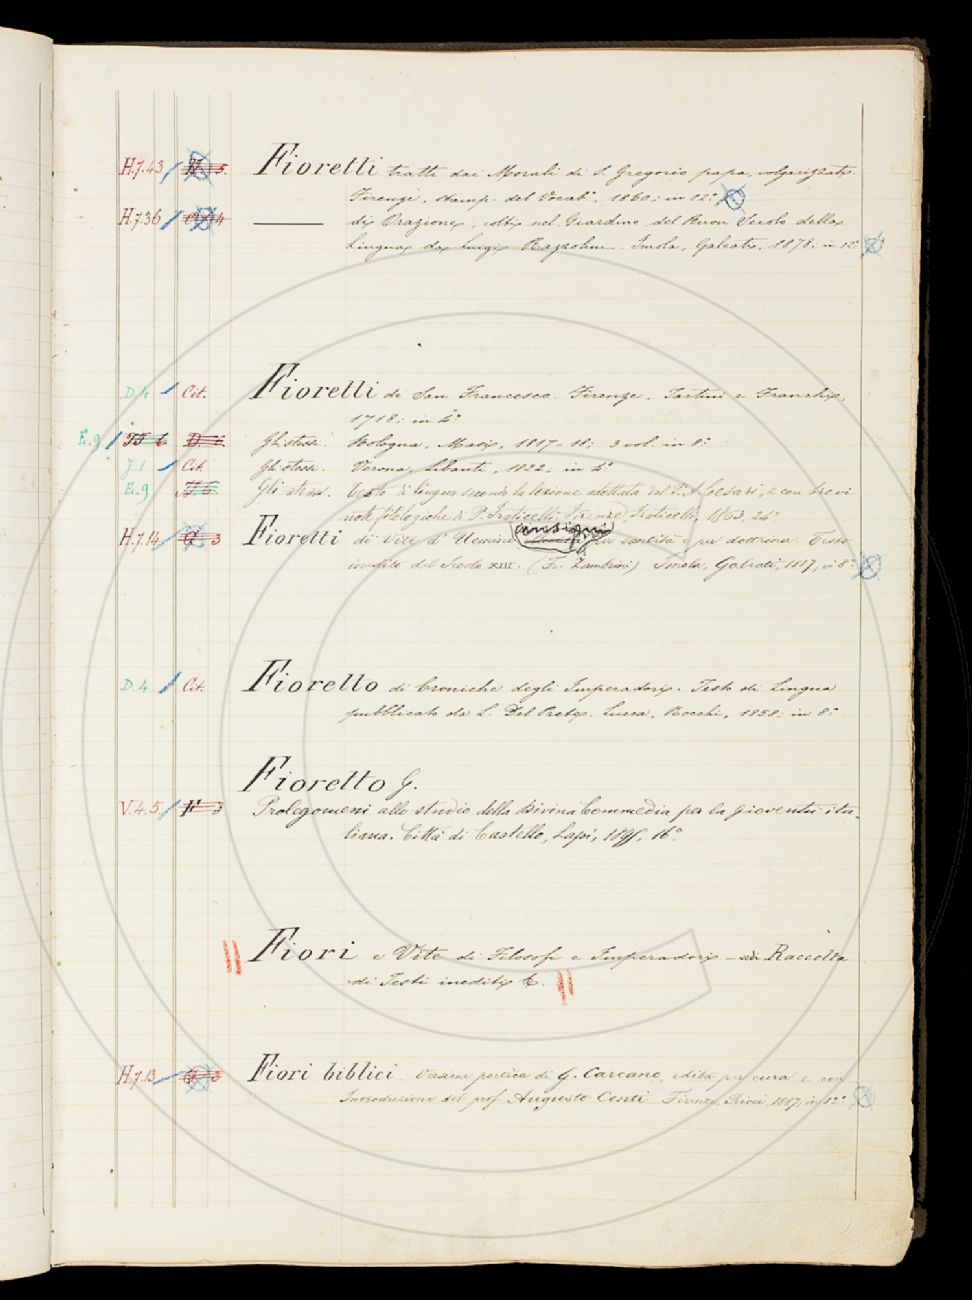 H.7.43 Fioretti tratti dai Morali di S. Gregorio papa, volgarizzati.
Firenze, stamp. del Vocab.°, 1860; in 12.°
H.7.36 di Orazione, colti nel Giardino del Buon Secolo della
Lingua da Luigi Razzolini. Imola, Galeati, 1878; in 12.°
D.4 Cit. Fioretti di San Francesco. Firenze, Tartini e Franchi,
1718; in 4.°
E.9 Gli stessi. Bologna, Masi, 1817-18; 3 vol. in 8.°
J.1 Cit. Gli stessi. Verona, Libanti, 1822; in 4.°
E.9 Gli stessi. Testo di lingua secondo la lezione adottata dal P. A. Cesari, e con brevi
note filologiche di P. Fraticelli. Firenze, Fraticelli, 1863, 24.°
H.7.14 G 3 Fioretti di Vite d' Uomini insigni per santità e per dottrina. Testo
inedito del Secolo XIII. (Fr. Zambrini) Imola, Galeati, in 8.°
D.4 Cit. Fioretto di Croniche degli Imperadori. Testo di Lingua
pubblicato da L. Del Prete. Lucca, Rocchi, 1858; in 8.°
Fioretto G.
V.4.5 3 Prolegomeni allo studio della Divina Commedia per la gioventù ita-
liana. Città di Castello, Lapi, 16.°
Fiori e Vite di Filosofi e Imperadori – vedi Raccolta
di Testi inediti
H.7.13 G 3 Fiori biblici. Versione poetica di G. Carcano, edita per cura e con
Introduzione del prof. Augusto Conti. Firenze, Ricci, 1887, in 12.°